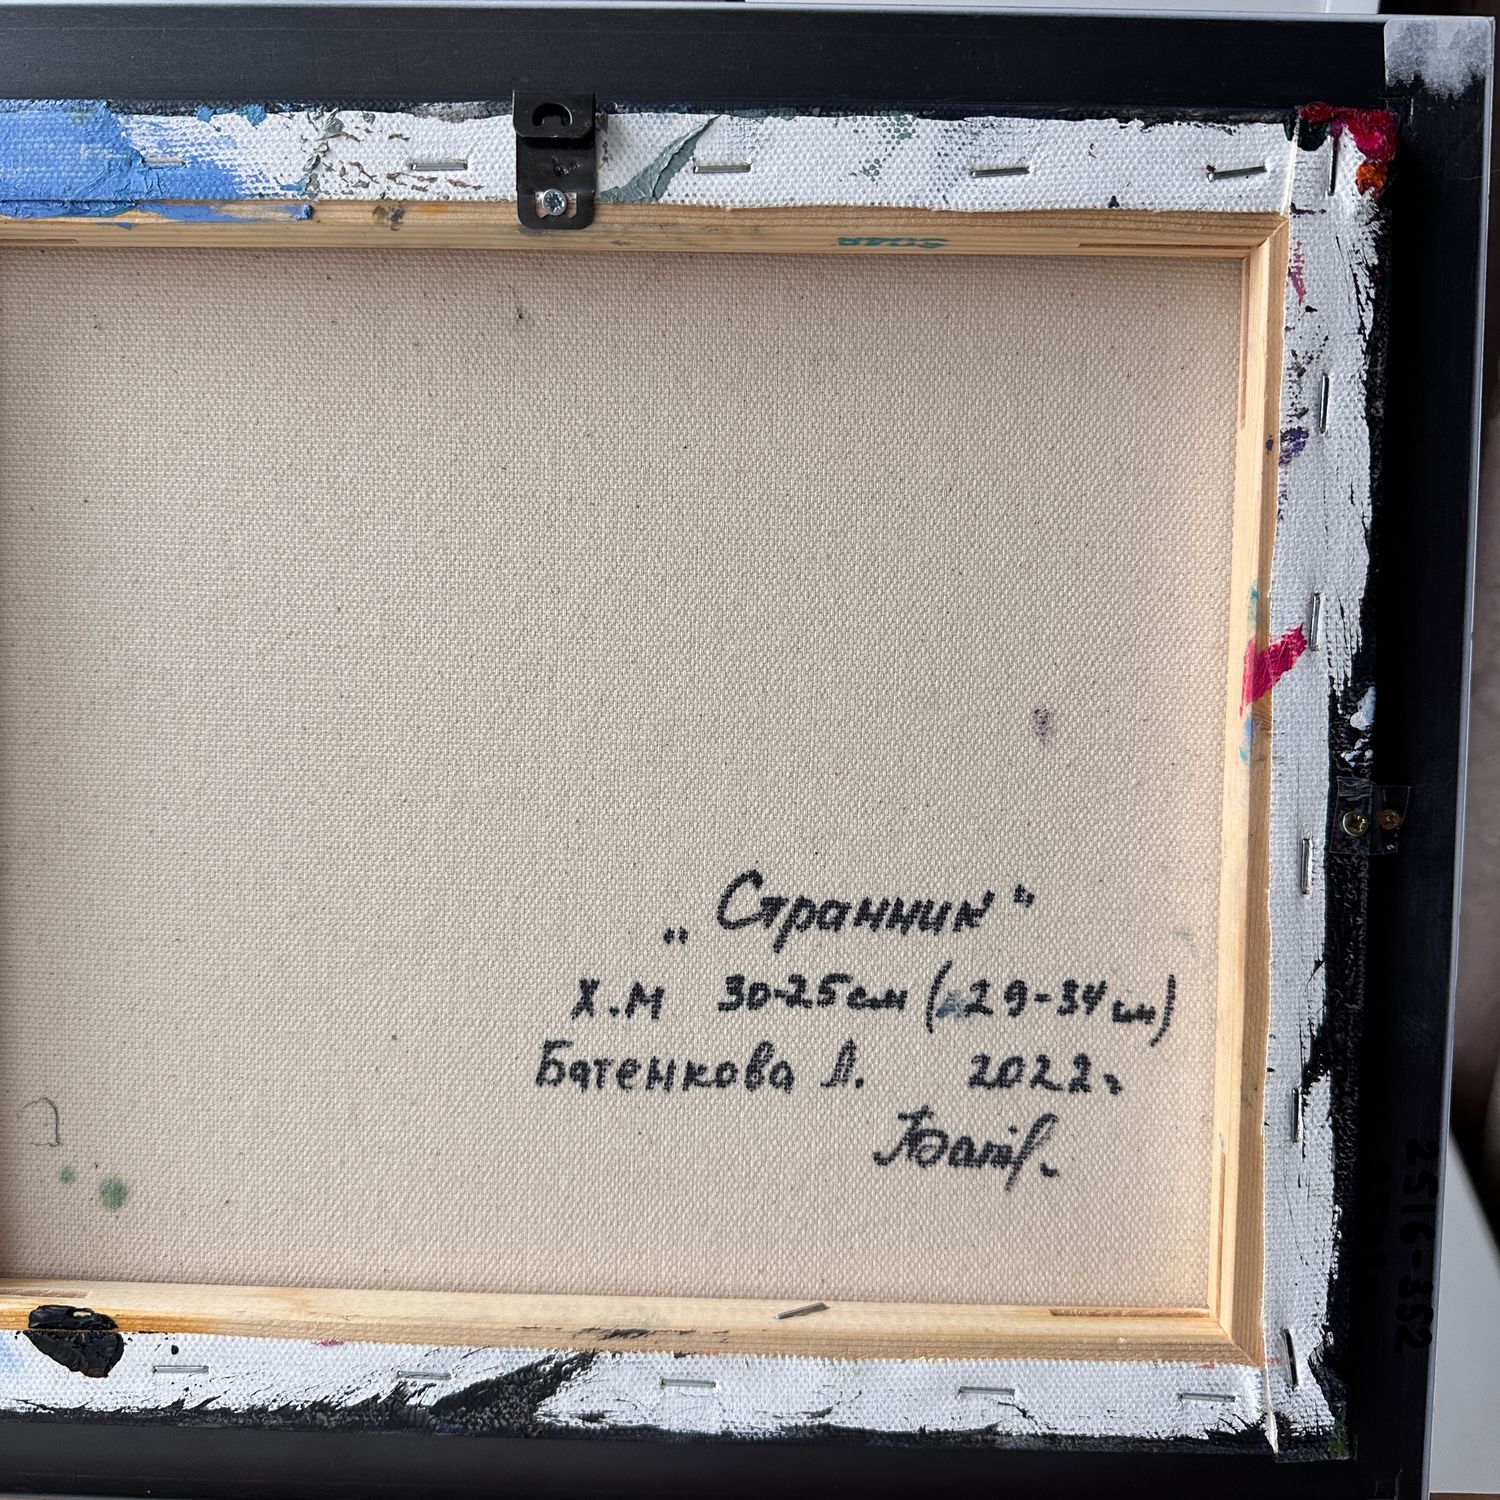 „Странник"
Х.М 30-25см (29-34см)
Батенкова А. 2022г
2516-8852